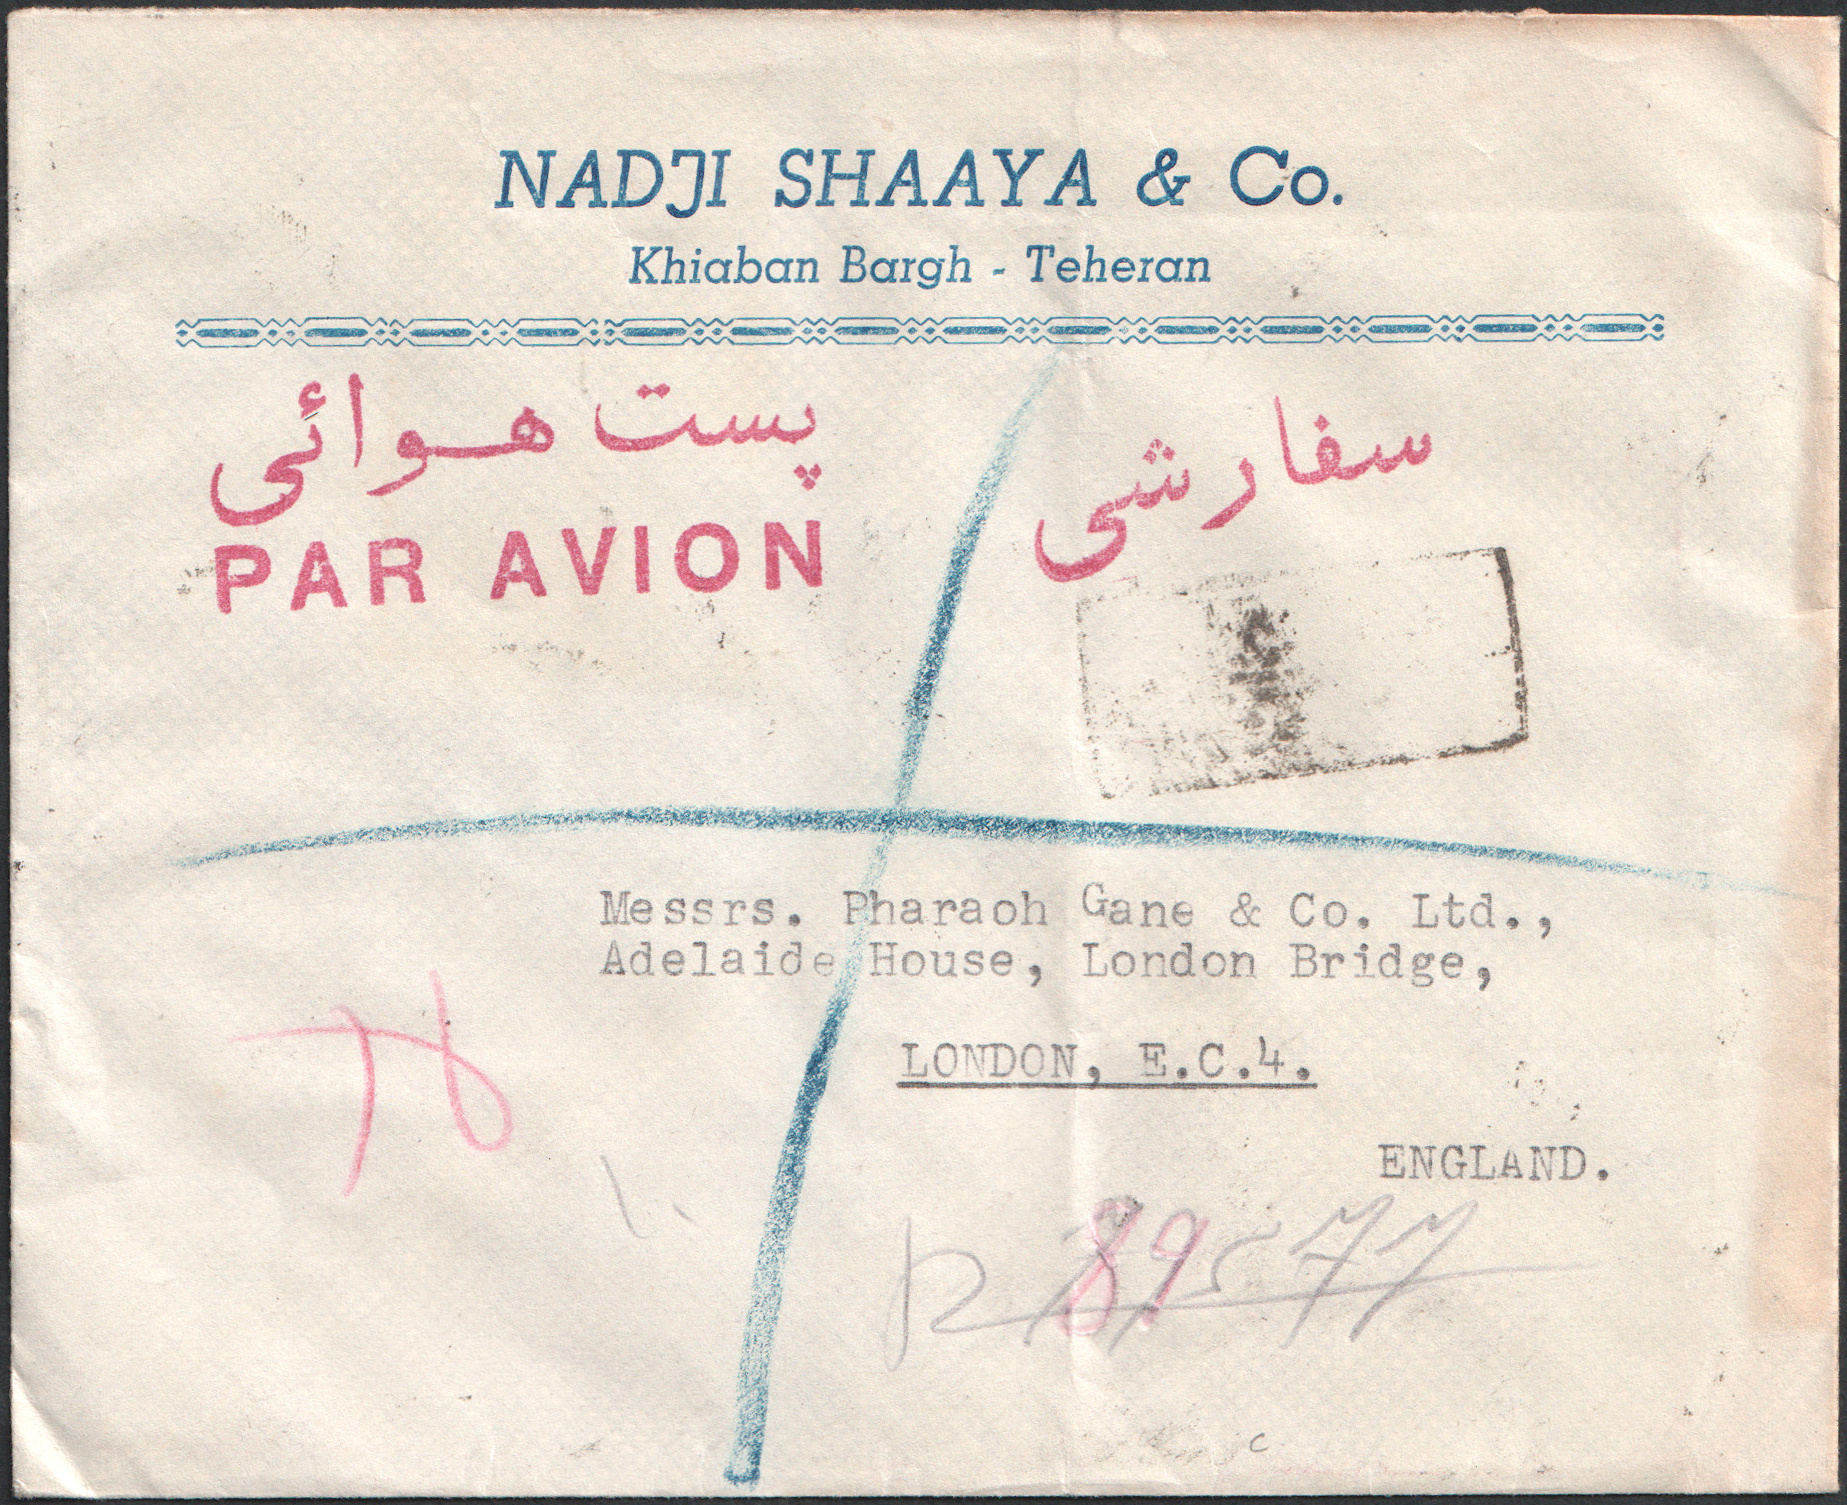 NADJI SHAAYA & Co.
Khiaban Bargh - Teheran
پست هوائی
سفارشی
PAR AVION
Messrs. Pharaoh Gane & Co. Ltd.,
Adelaide House, London Bridge,
LONDON, E.C.4.
ENGLAND.
89